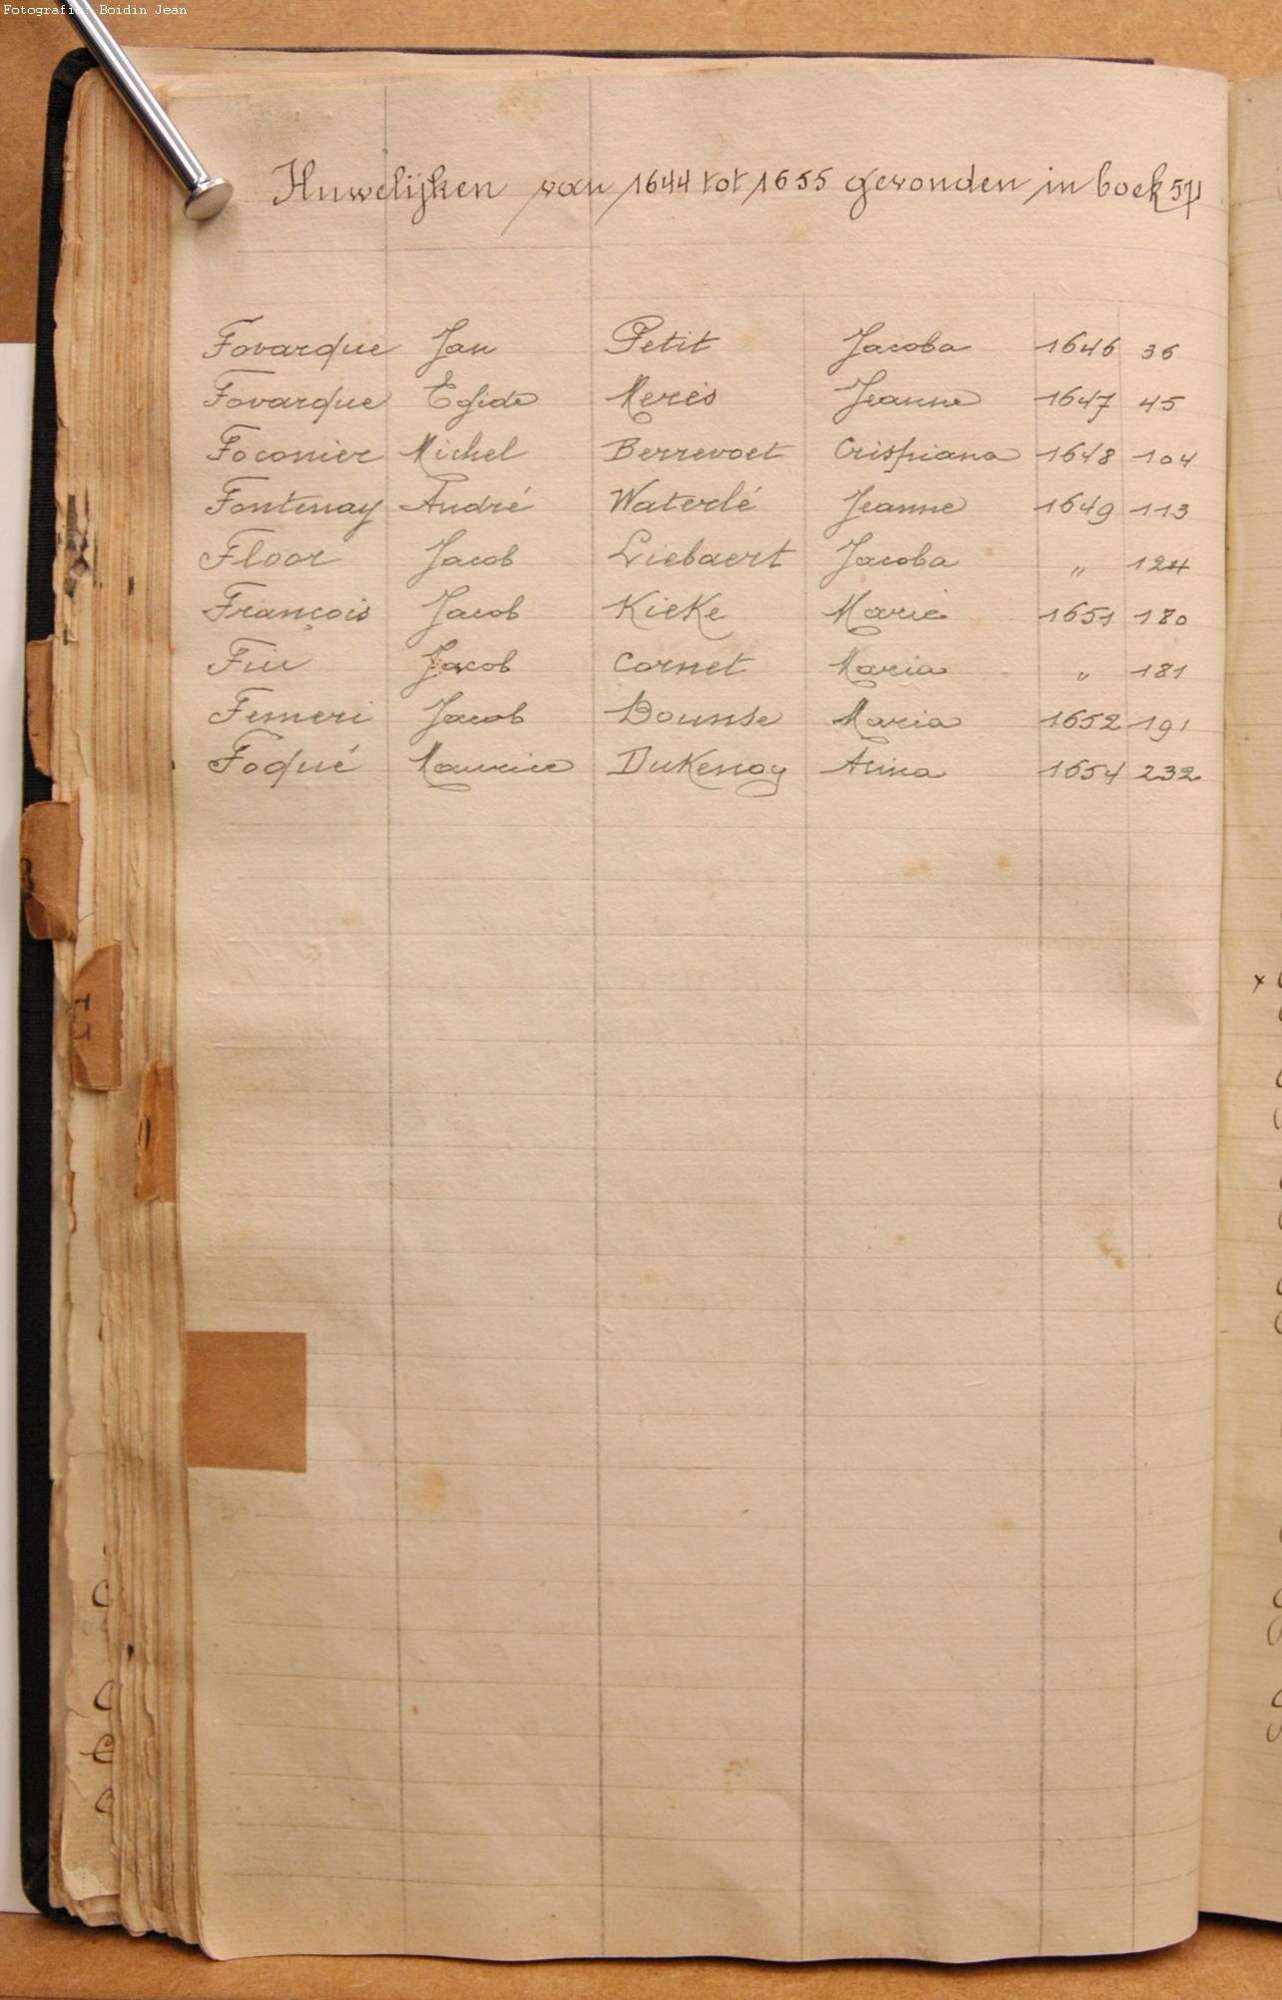 Fotografie: Boidin Jean
Huwelijken van 1644 tot 1655 gevonden in boek
Fovarque Jan Petit Jacoba 1646 36
Fovarque Egide Merés Jeanne 1647 45
Foconier Michel Berrevoet Crispiana 1648 104
Fontenay André Waterlé Jeanne 1649 113
Floor Jacob Liebaert Jacoba " 124
François Jacob Kieke Marie 1651 180
Jacob Cornet Maria " 181
Femeri Jacob Maria 1652 191
Foqué Maurice DuKenoy Anna 1654 232